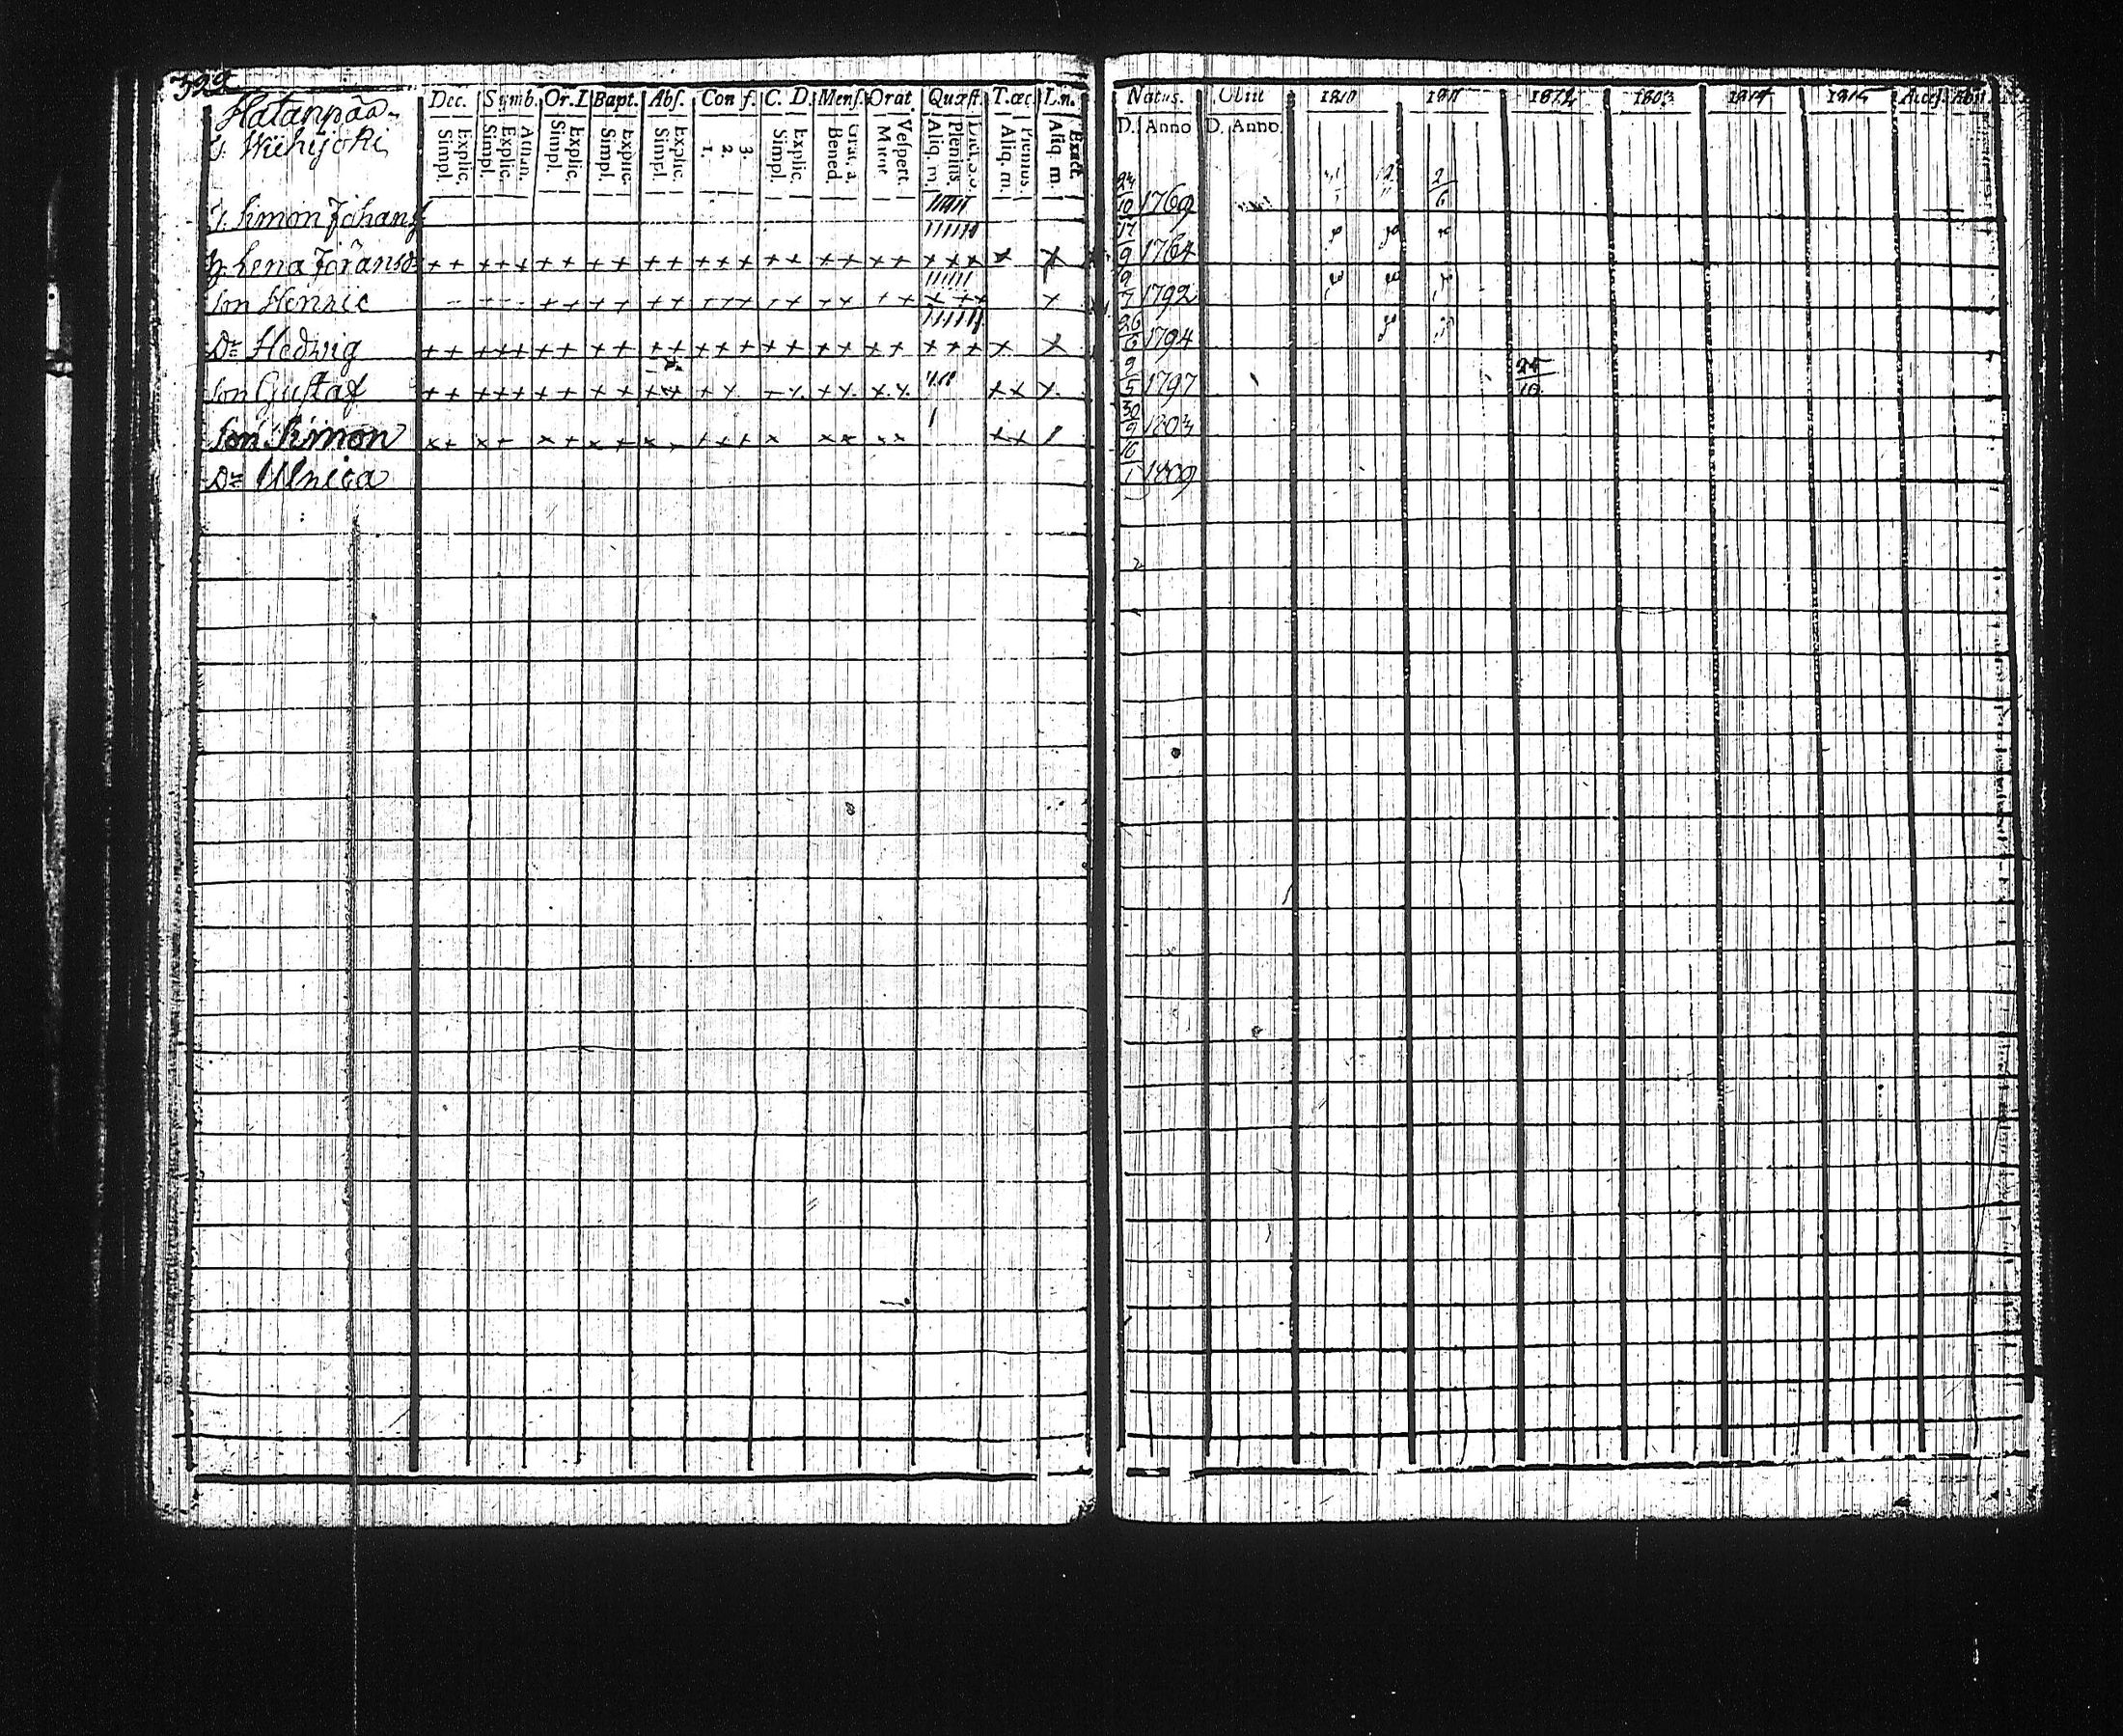 399
Hatanpää
Wichijoki
Dec. Symb. Or. D Bapt. Abſ. Conf. C. D. Menſ. Orat. Quæſt. T. œc. L. n.
Simpl. Explic. Simpl. Explic. Athan. Simpl. Explic. Simpl. Explic. Simpl. Explic. 1. 2. 3. Simpl. Explic. Bened. Grat. a. Matut Veſpert. Aliq. m. Plenius. Dict. S. S. Aliq. m. Plenius. Aliq. m. Exact.
Natus. Obiit 1810 1811 1812 1813 1814 1815 Acceſ. Abiit
D. Anno D. Anno
Simon Johans 24/10 1769 2/6
H. Lena Jöransd: 17/9 1764
Son Henric 9/7 1792
Dr Hedwig 26/6 1794
Son Gustaf 2/5 1797 25/10
Son Simon 30/9 1803
Dr Ulrica 16/1 1809